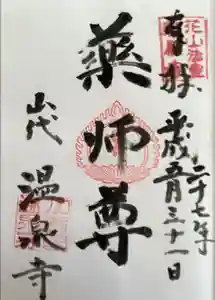 奉拝
平成二十七年
五月三十一日
薬師尊
山代
温泉寺